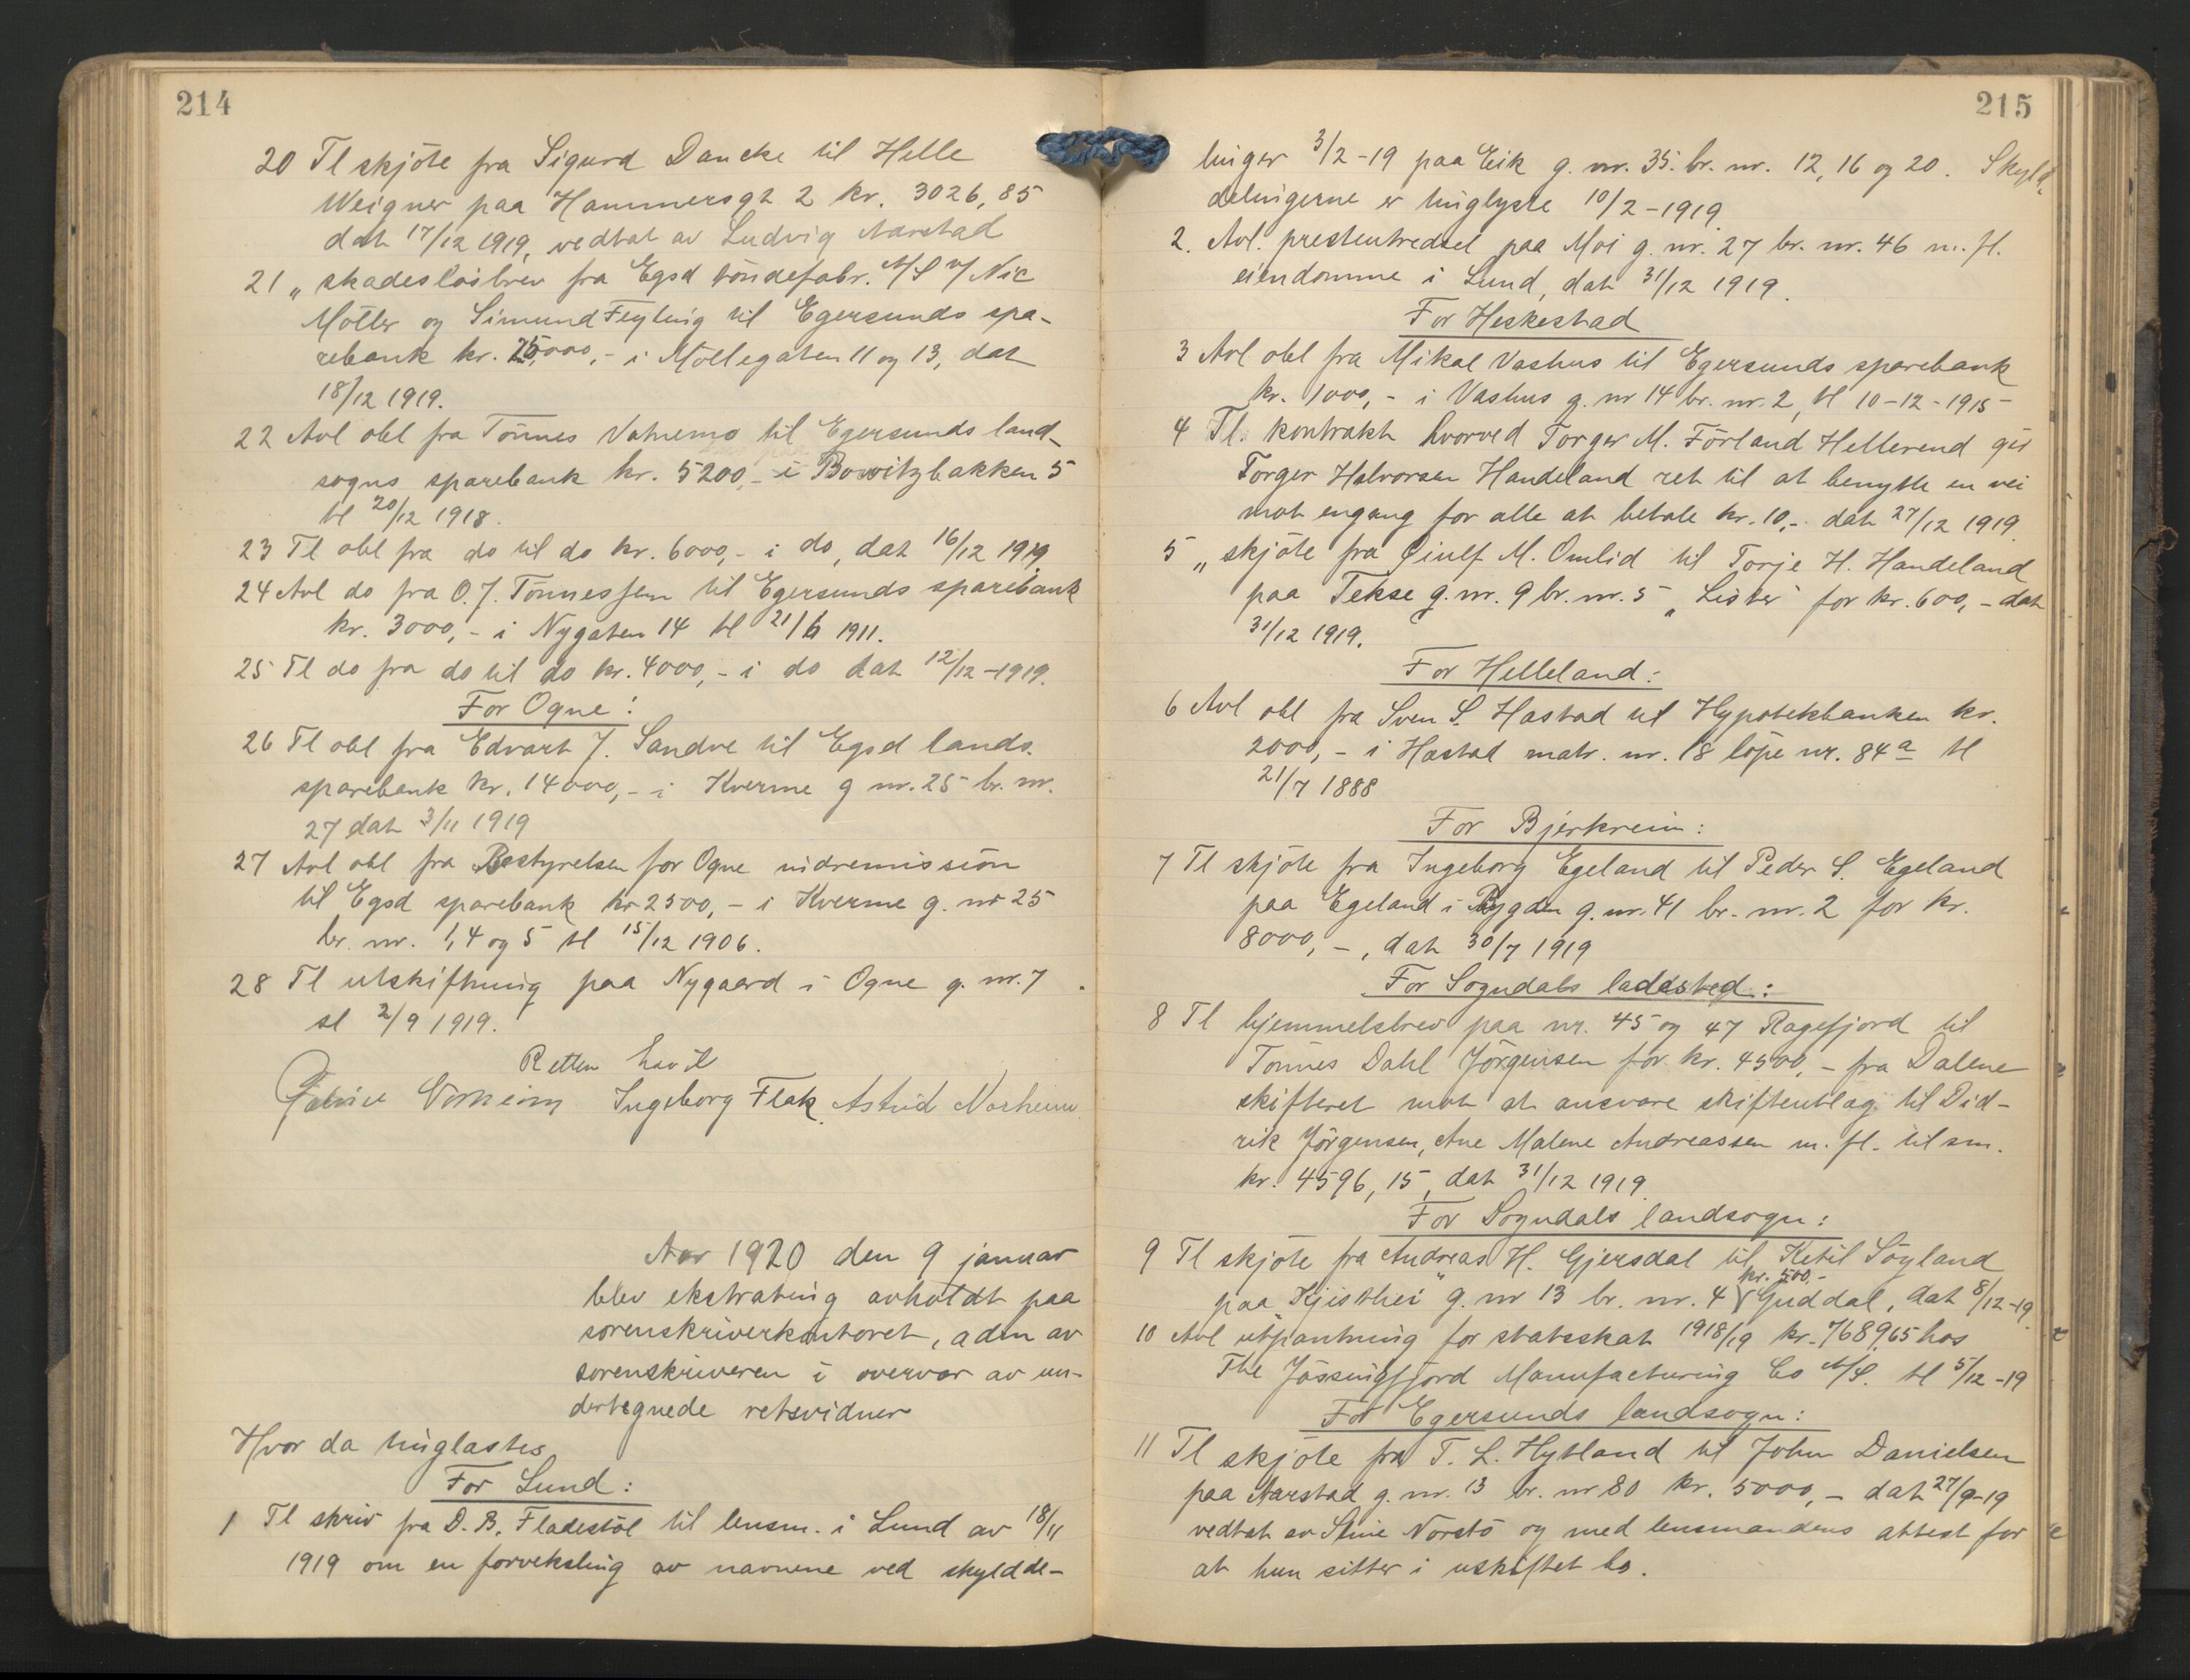 214
20 Tl skjöte fra Sigurd Dancke til Helle
Weigner paa Hammersgt 2 kr. 3026,85
dat 17/12 1919, vedtat av Ludvig Aarstad
21 „ skadeslösbrev fra Egsd töndefabr. A/S v/ Nic
Möller og Simund Feyling til Egersunds spa-
rebank kr. 25,000,- i Möllegaten 11 og 13, dat
18/12 1919.
22 Avl obl fra Tönnes Vatnemo til Egersunds land-
sogns sparebank kr. 5200,- i Bowitzbakken 5
tl 20/12 1918.
23 Tl obl fra do til do kr. 6000,- i do, dat 16/12 1919
24 Avl do fra O. J. Tönnessen til Egersunds sparebank
kr. 3000,- i Nygaten 14 tl 21/6 1911.
25 Tl do fra do til do kr. 4000,- i do dat 12/12-1919.
For Ogne:
26 Tl obl fra Edvart J. Sandve til Egsd lands.
sparebank kr. 14000,- i Kverme g nr. 25 br. nr.
27 dat 3/11 1919
27 Avl obl fra Bestyrelsen for Ogne indremission
til Egsd sparebank kr 2500,- i Kverme g. nr 25
br. nr. 1,4 og 5 tl 15/12 1906.
28 Tl utskiftning paa Nygaard i Ogne g. nr. 7
sl 2/9 1919.
Retten hævet
Ingeborg Flak. Astrid Norheim
Aar 1920 den 9 januar
blev ekstrating avholdt paa
sorenskriverkontoret, adm av
sorenskriveren i overvær av un-
dertegnede retsvidner
Hvor da tinglæstes
For Lund:
1 Tl skriv fra D. B. Fladestöl til lensm. i Lund av 18/11
1919 om en forveksling av navnene ved skyldde-
215
linger 3/2-19 paa Eik g. nr. 35. br. nr. 12, 16 og 20. Skyld-
delingerne er tinglyste 10/2-1919.
2. Avl. presteutredsel paa Moi g. nr. 27 br. nr. 46 m. fl.
eiendomme i Lund, dat 31/12 1919.
For Heskestad
3 Avl obl fra Mikal Vashus til Egersunds sparebank
kr. 1000,- i Vashus g. nr 14 br. nr. 2, tl 10-12-1915
4 Tl. kontrakt hvorved Torger M. Förland Hellerend gir
Torger Halvorsen Handeland ret til at benytte en vei
mot engang for alle at betale kr. 10,-. dat 27/12 1919
5 „ skjöte fra Giulf M. Omlid til Torje H. Handeland
paa Tekse g. nr. 9 br. nr. 5 „Lister“ for kr. 600,- dat
31/12 1919.
For Helleland:
6 Avl obl fra Sven S. Hæstad til Hypotekbanken kr.
2000,- i Hæstad matr. nr. 18 löpe nr. 84a tl
21/7 1888
For Bjerkreim:
7 Tl skjöte fra Ingeborg Egeland til Peder S. Egeland
paa Egeland i Bygden g. nr. 41 br. nr. 2 for kr.
8000,-, dat 30/7 1919
For Sogndals ladested:
8 Tl hjemmelsbrev paa nr. 45 og 47 Ragefjord til
Tönnes Dahl Jörgensen for kr. 4500,- fra Dalene
skifteret mot at ansvare skifteutlæg til Did-
rik Jörgensen, Ane Malene Andreassen m. fl. til sm.
kr. 4596,15, dat 31/12 1919.
For Sogndals landsogn:
9 Tl skjöte fra Andreas H. Gjersdal til Ketil Söyland
kr. 500,-
paa „Kjisthei“ g. nr 13 br. nr. 4 Guddal, dat 8/12-19.
10 Avl utpantning for statsskat 1918/19 kr. 7689,65 hos
The Jössingfjord Manufacturing Co A/S. tl 5/12-19
For Egersunds landsogn:
11 Tl skjöte fra T. L. Hytland til John Danielsen
paa Aarstad g. nr. 13 br. nr 80 kr. 5000,- dat 27/9-19
vedtat av Stine Norstö og med lensmandens attest for
at hun sitter i uskiftet bo.